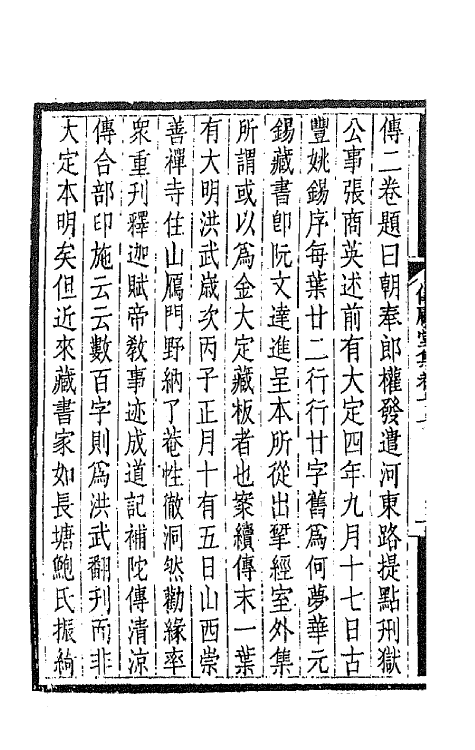 傳二卷題曰朝奉郎權發遣河東路提點刑獄
公事張商英述前有大定四年九月十七日古
豐姚錫序每葉廿二行行廿字舊爲何夢華元
錫藏書卽阮文達進呈本所從出揅經室外集
所謂或以爲金大定藏板者也案續傳末一葉
有大明洪武歲次丙子正月十有五日山西崇
善禪寺住山鴈門野納了菴性徹洞然勸緣率
衆重刊釋迦賦帝敎事迹成道記補陀傳清涼
傳合部印施云云數百字則爲洪武翻刋而非
大定本明矣但近來藏書家如長塘鮑氏振綺